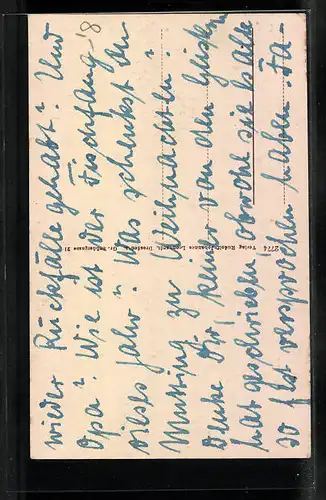 wieder Rückfälle gehabt? Und
Opa? Wie ist der Fischfang
dieses Jahr? Was schenkst du
Muttring zu Weihnachten?
Denke Dir, keiner von den Gästen
hat geschrieben! obwohl sie es alle
so fest versprochen haben. Fa-
2774 Verlag Rudolf Johannes Leonhardt, Dresden, Gr. Brüdergasse 21